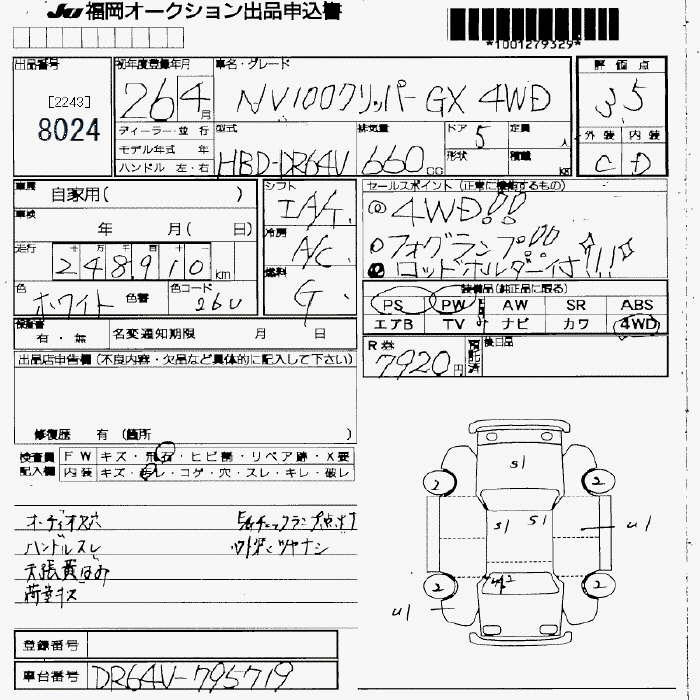 JU 福岡オークション出品申込書
*1001279329*
出品番号 初年度登録年月 車名・グレード 評価点
[2243] 8024 26 4月 NV100クリッパーGX 4WD 3.5
ディーラー・並行 型式 排気量 ドア 5 定員 人 外装 内装
モデル年式 年 HBD-DR64V 660cc 形状 積載 kg C D
ハンドル 左・右
車歴 自家用( ) シフト IA/T セールスポイント (正常に機能するもの)
車検 年 月( 日) 冷房 A/C ◎4WD!!
走行 十 万 千 百 十 248,910km 燃料 G ○フォグランプ!!
色 ホワイト 色替 色コード 26U ロッドホルダー付!!!
装備品(純正品に限る)
PS PW AW SR ABS
エアB TV ナビ カワ 4WD
保証書 有・無 名変通知期限 月 日
R券 7920円 預託済 後日品
出品店申告欄 (不良内容・欠品など具体的に記入して下さい)
修復歴 有 (箇所 )
検査員記入欄 FW キズ・飛石・ヒビ割・リペア跡・X要
内装 キズ・汚レ・コゲ・穴・スレ・キレ・破レ
オーディオス穴 E/gチェックランプ点灯
ハンドルスレ 外装ツヤナシ
天張
荷室キズ
S1
S1 S1
U1
U1
2 2
2 2
登録番号
車台番号 DR64V-795719